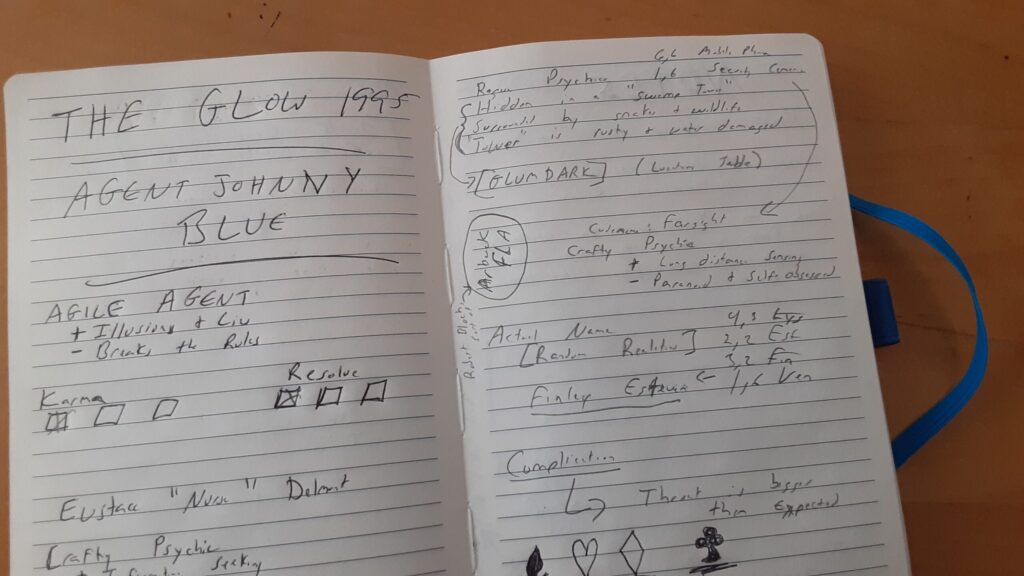 THE GLOW 1995
AGENT JOHNNY
BLUE
AGILE AGENT
+ Illusions + Liu
- Breaks the Rules
Karma
Resolve
Eustace " " Delmont
Crafty Psychic
+ Information seeking
6,6 Mobile Phone
Rogue Psychic 1,6 Security Camera
Hidden in a "Swamp Town"
Surrounded by snakes + wildlife
"Tower" is rusty + water damaged
[GLUMDARK] (Location Table)
Codename: Farsight
Crafty Psychic
+ Long distance sensing
- Paranoid + Self obsessed
FLA
Actual Name
[Random Realities]
4,3
2,2
3,2 Fin
Finley ← 1,6
Complication
Threat is bigger
than expected